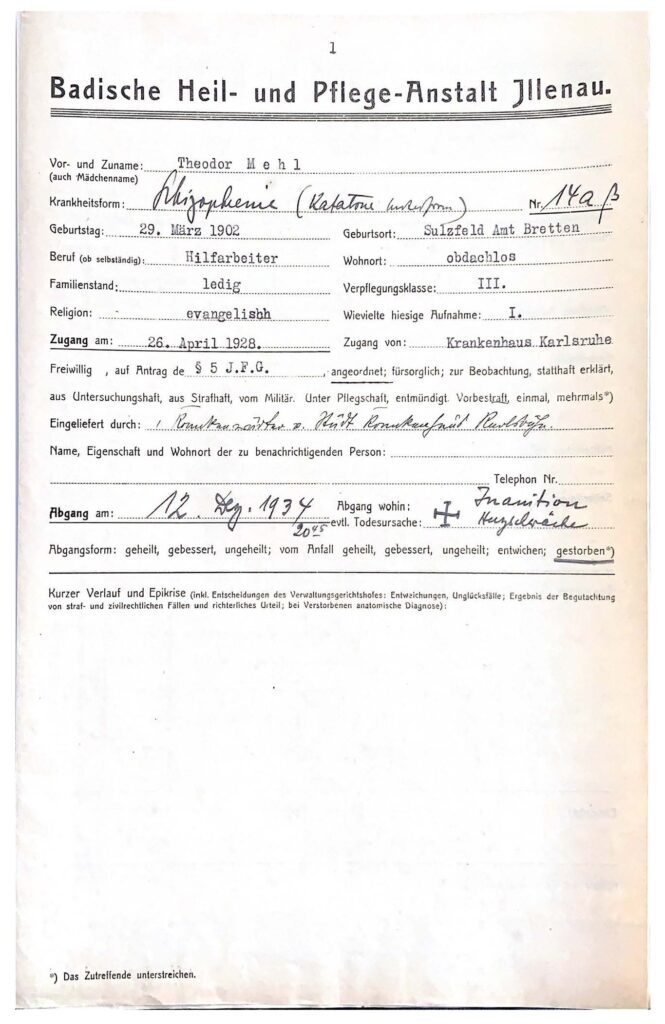 1
Badische Heil- und Pflege-Anstalt Jllenau.
Vor- und Zuname: Theodor Mehl
(auch Mädchenname)
Krankheitsform: Schizophrenie (Katatone Unterform) Nr. 14a β
Geburtstag: 29. März 1902 Geburtsort: Sulzfeld Amt Bretten
Beruf (ob selbständig): Hilfarbeiter Wohnort: obdachlos
Familienstand: ledig Verpflegungsklasse: III.
Religion: evangelishh Wievielte hiesige Aufnahme: I.
Zugang am: 26. April 1928. Zugang von: Krankenhaus Karlsruhe
Freiwillig , auf Antrag de § 5 J.F.G. , angeordnet; fürsorglich; zur Beobachtung, statthaft erklärt,
aus Untersuchungshaft, aus Strafhaft, vom Militär. Unter Pflegschaft, entmündigt. Vorbestraft, einmal, mehrmals*)
Eingeliefert durch: Krankenwärter v. Städt Krankenhaus Karlsruhe.
Name, Eigenschaft und Wohnort der zu benachrichtigenden Person:
Telephon Nr.
Abgang am: 12. Dez. 1934 20 45 Abgang wohin: Inanition
evtl. Todesursache: Herzschwäche
Abgangsform: geheilt, gebessert, ungeheilt; vom Anfall geheilt, gebessert, ungeheilt; entwichen; gestorben*)
Kurzer Verlauf und Epikrise (inkl. Entscheidungen des Verwaltungsgerichtshofes: Entweichungen, Unglücksfälle; Ergebnis der Begutachtung
von straf- und zivilrechtlichen Fällen und richterliches Urteil; bei Verstorbenen anatomische Diagnose):
*) Das Zutreffende unterstreichen.